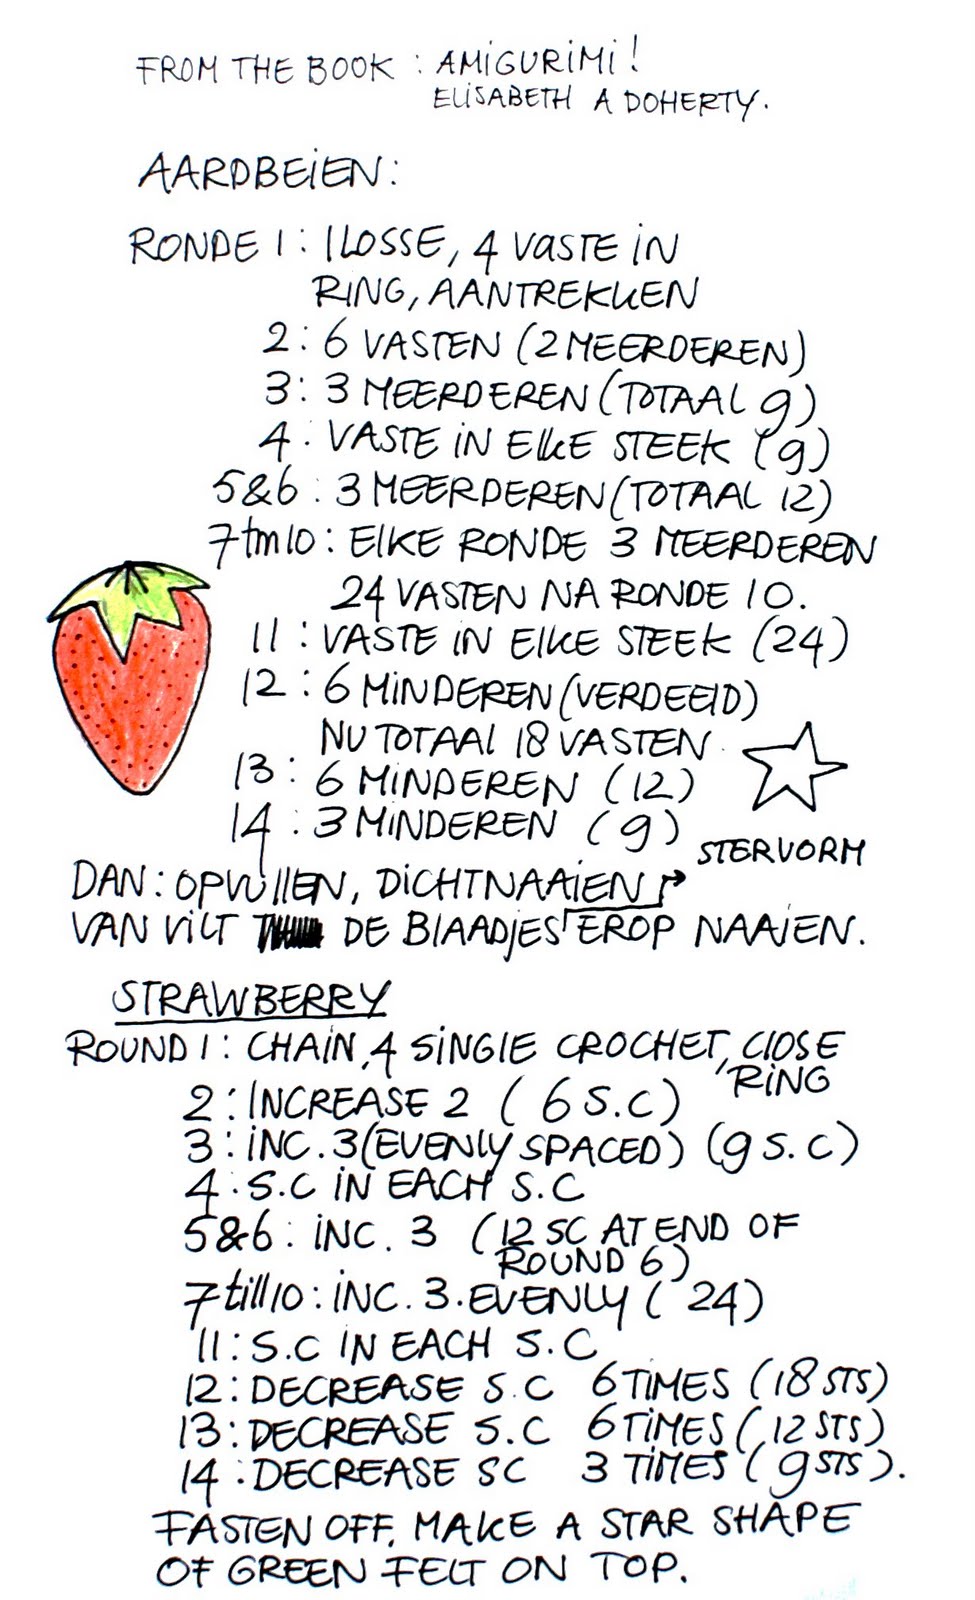 FROM THE BOOK : AMiGURiMi!
ELiSABETH A DOHERTY.
AARDBEiEN:
RONDE 1: 1 LOSSE, 4 VASTE iN
RING, AANTREKKEN
2: 6 VASTEN (2 MEERDEREN)
3: 3 MEERDEREN (TOTAAL 9)
4: VASTE iN ElKE STEEK (9)
5&6: 3 MEERDEREN (TOTAAL 12)
7 tm 10: ElKE RONDE 3 MEERDEREN
24 VASTEN NA RONDE 10.
11: VASTE iN ElKE STEEK (24)
12: 6 MiNDEREN (VERDEElD)
NU TOTAAL 18 VASTEN
13: 6 MiNDEREN (12)
14: 3 MiNDEREN (9)
STERVORM
DAN: OPVUllEN, DiCHTNAAiEN
VAN ViLT DE BlAADjES EROP NAAiEN.
STRAWBERRY
ROUND 1: CHAiN, 4 SiNGlE CROCHET, ClOSE
RiNG
2: INCREASE 2 (6 S.C)
3: iNC. 3 (EVENLY SPACED) (9 S.C)
4: S.C iN EACH S.C
5&6: iNC. 3 (12 SC AT END OF
ROUND 6)
7 till 10: iNC. 3. EVENLY (24)
11: S.C iN EACH S.C
12: DECREASE S.C 6 TiMES (18 STS)
13: DECREASE S.C 6 TiMES (12 STS)
14: DECREASE SC 3 TiMES (9 STS).
FASTEN OFF, MAKE A STAR SHAPE
OF GREEN FELT ON TOP.